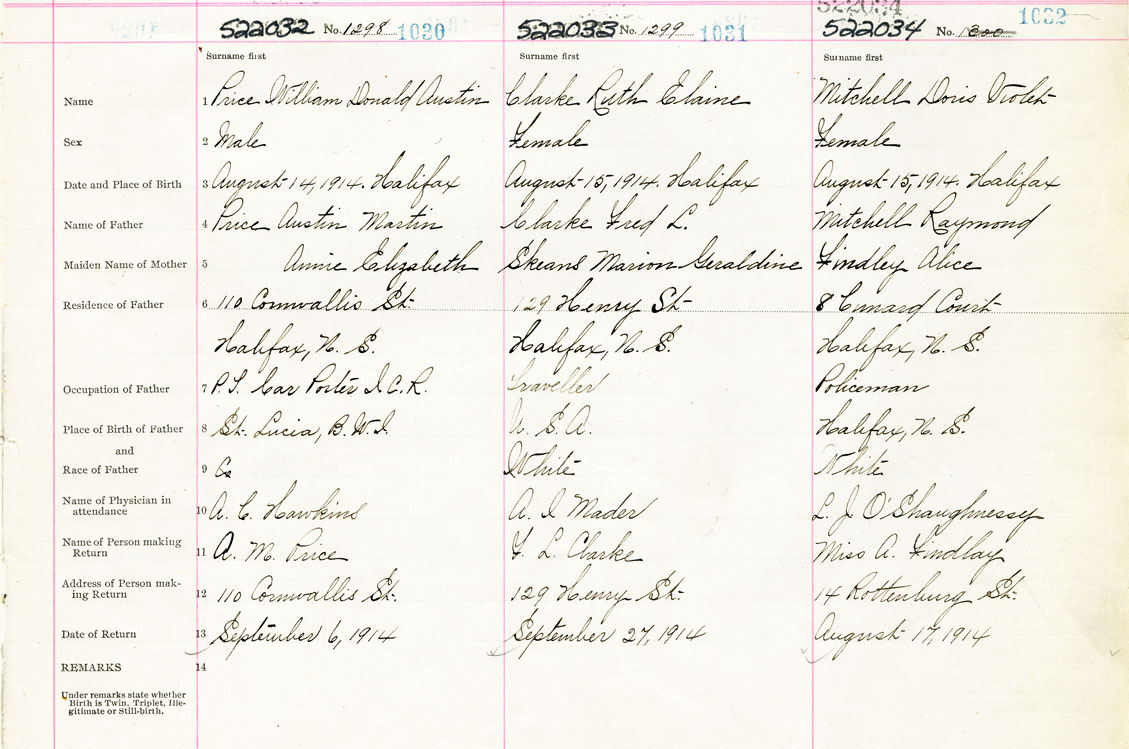 522034
522032 No. 1298 1030 522033 No. 1299 1031 522034 No. 1300 1032
Surname first Surname first Surname first
Name 1 Price William Donald Austin Clarke Ruth Elaine Mitchell Doris Violet
Sex 2 Male Female Female
Date and Place of Birth 3 August 14, 1914. Halifax August 15, 1914. Halifax August 15, 1914. Halifax
Name of Father 4 Price Austin Martin Clarke Fred L. Mitchell Raymond
Maiden Name of Mother 5 Annie Elizabeth Skeans Marion Geraldine Findley Alice
Residence of Father 6 110 Cornwallis St. 129 Henry St. 8 Cunard Court
Halifax, N. S. Halifax, N. S. Halifax, N. S.
Occupation of Father 7 P. S. Car Porter I. C. R. Traveller Policeman
Place of Birth of Father 8 St. Lucia, B. W. I. U. S. A. Halifax, N. S.
and
Race of Father 9 White White
Name of Physician in
attendance 10 A. C. Hawkins A. I Mader L. J. O'Shaughnessy
Name of Person making
Return 11 A. M. Price F. L. Clarke Miss A. Findlay
Address of Person mak-
ing Return 12 110 Cornwallis St. 129 Henry St. 14 Rottenburg St.
Date of Return 13 September 6, 1914 September 27, 1914 August 17, 1914
REMARKS 14
Under remarks state whether
Birth is Twin, Triplet, Ille-
gitimate or Still-birth.